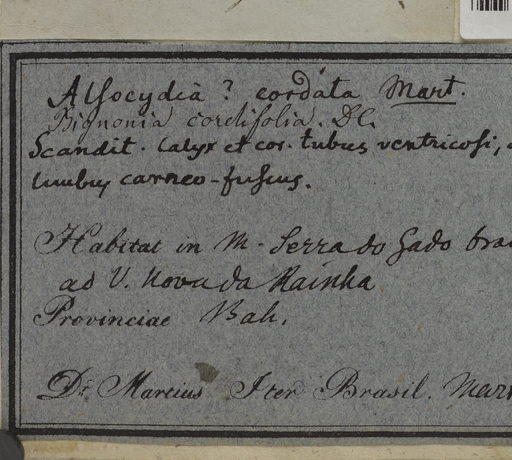 Alsocydia ? cordata Mart.
Bignonia cordifolia. DC.
Scandit. Calyx et cor. tubus ventricosi,
limbus carneo-fuscus.
Habitat in M. Serra do Gado bra
ad V. Nova da Rainha
Provinciae Bah.
Dr. Martius Iter Brasil. Mart